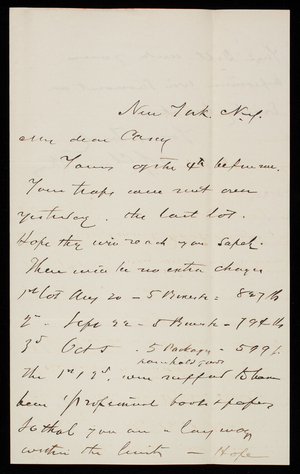 New York. N.Y.
My dear Casey
Yours of the 4th before me.
Your traps were sent over
yesterday, the last lot.
Hope they will reach you safely.
There will be no extra charges
1st lot Aug 20 - 5 Boxes = 827 lb
2d - Sept 22 - 5 Boxes - 794 lb
3d Oct 5 . 5 Packages - 599 lb
household goods
The 1st & 2d. were supposed to have
been "professional books & papers
so that you are a long way
within the limits - Hope